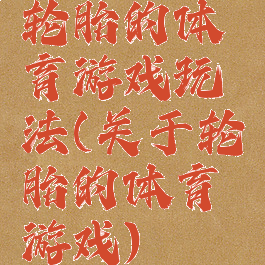 轮胎的体
育游戏玩
法(关于轮
胎的体育
游戏)